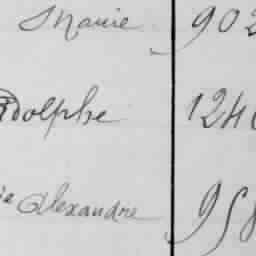 Marie 902
Adolphe 124
Alexandre 95